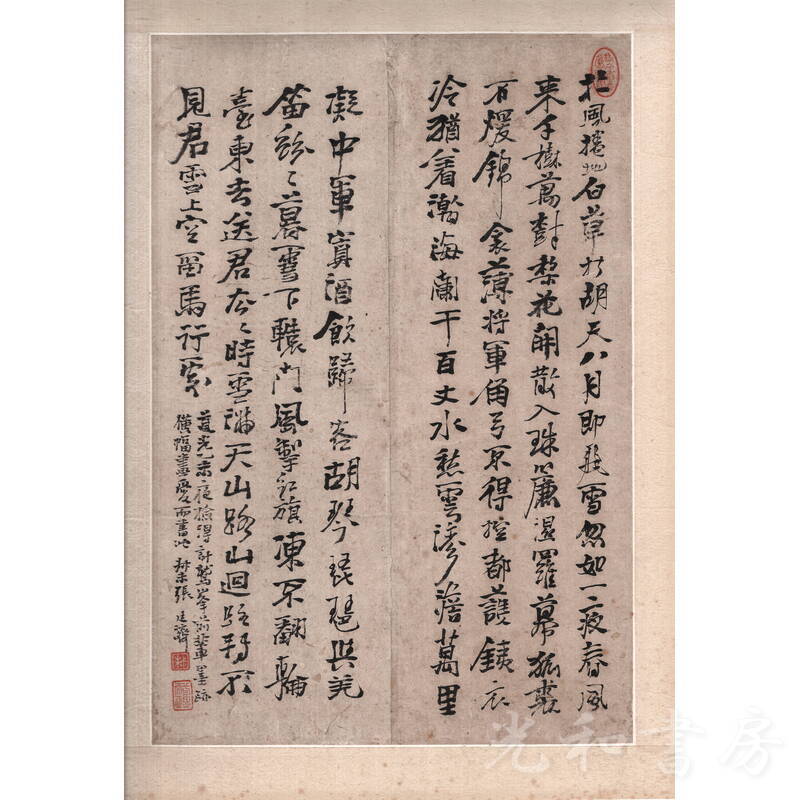 北風捲地白草折胡天八月即飛雪忽如一夜春風
來千樹萬樹梨花開散入珠簾濕羅幕狐裘
不煖錦衾薄將軍角弓不得控都護鐵衣
冷猶著瀚海闌干百丈冰愁雲慘澹萬里
凝中軍置酒飲歸客胡琴琵琶與羌
笛紛〻暮雪下轅門風掣紅旗凍不翻輪
臺東去送君去〻時雪滿天山路山迴路轉不
見君雪上空留馬行處
道光乙未夜檢得許鷲峯前輩墨跡
橫幅書愛而書此 叔未張廷濟
光和書房